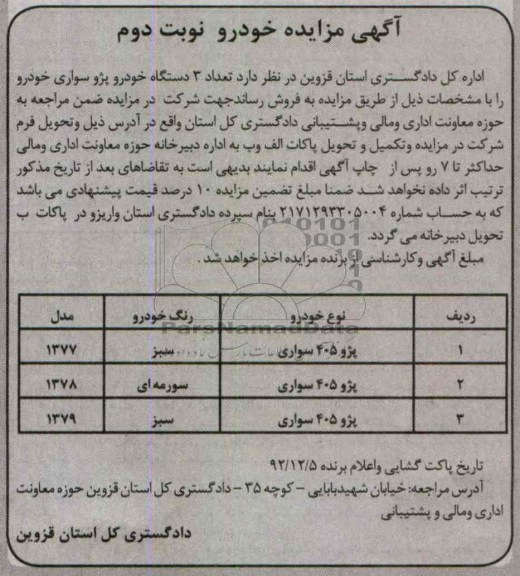 آگهی مزایده خودرو نوبت دوم
اداره کل دادگستری استان قزوین در نظر دارد تعداد ۳ دستگاه خودرو پژو سواری خودرو
را با مشخصات ذیل از طریق مزایده به فروش رساندجهت شرکت در مزایده ضمن مراجعه به
حوزه معاونت اداری ومالی وپشتیبانی دادگستری کل استان واقع در آدرس ذیل وتحویل فرم
شرکت در مزایده وتکمیل و تحویل پاکات الف وب به اداره دبیرخانه حوزه معاونت اداری ومالی
حداکثر تا ۷ رو پس از چاپ آگهی اقدام نمایند بدیهی است به تقاضاهای بعد از تاریخ مذکور
ترتیب اثر داده نخواهد شد ضمنا مبلغ تضمین مزایده ۱۰ درصد قیمت پیشنهادی می باشد
که به حساب شماره ۲۱۷۱۲۹۳۳۰۵۰۰۴ بنام سپرده دادگستری استان واریزو در پاکات ب
تحویل دبیرخانه می گردد.
مبلغ آگهی وکارشناسی از برنده مزایده اخذ خواهد شد .
ردیف نوع خودرو رنگ خودرو مدل
ParsNamadData
۱ پژو ۴۰۵ سواری سبز ۱۳۷۷
۲ پژو ۴۰۵ سواری سورمه ای ۱۳۷۸
۳ پژو ۴۰۵ سواری سبز ۱۳۷۹
تاریخ پاکت گشایی واعلام برنده ۹۲/۱۲/۵
آدرس مراجعه: خیابان شهیدبابایی - کوچه ۳۵ - دادگستری کل استان قزوین حوزه معاونت
اداری ومالی و پشتیبانی
دادگستری کل استان قزوین